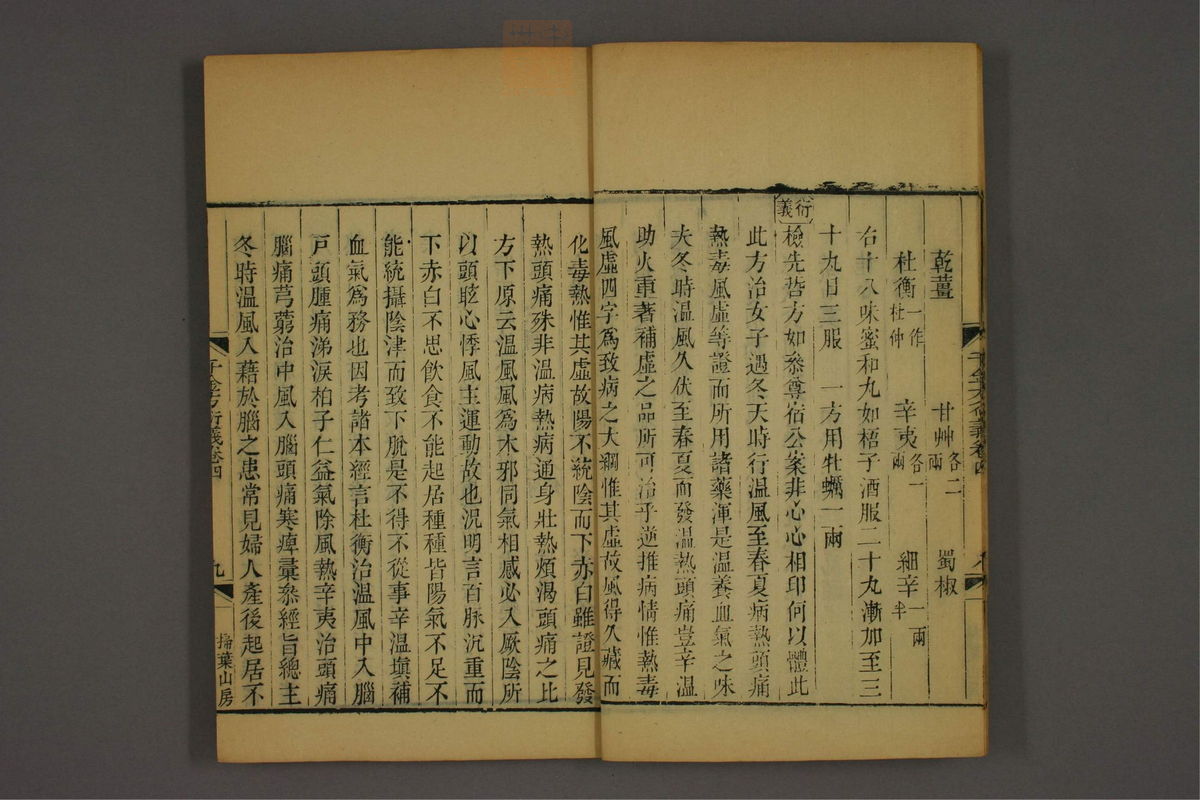 乾薑 甘艸各二兩 蜀椒
杜衡一作杜仲 辛夷各一兩 細辛一兩半
右十八味蜜和丸如梧子酒服二十九漸加至三
十九日三服 一方用牡蠣一兩
衍義
檢先哲方如叅尊宿公案非心心相印何以體此
此方治女子遇冬天時行溫風至春夏病熱頭痛
熱毒風虛等證而所用諸藥渾是溫養血氣之味
夫冬時溫風久伏至春夏而發溫熱頭痛豈辛溫
助火重著補虛之品所可治乎逆推病情惟熱毒
風虛四字為致病之大綱惟其虛故風得久藏而
化毒熱惟其虛故陽不統陰而下赤白雖證見發
熱頭痛殊非溫病熱病通身壯熱煩渴頭痛之比
方下原云溫風風為木邪同氣相感必入厥陰所
以頭眩心悸風主運動故也況明言百脈沉重而
下赤白不思飲食不能起居種種皆陽氣不足不
能統攝陰津而致下脫是不得不從事辛溫塡補
血氣爲務也因考諸本經言杜衡治溫風中入腦
戸頭腫痛涕淚柏子仁益氣除風熱辛夷治頭痛
腦痛芎藭治中風入腦頭痛寒痺彚叅經旨總主
冬時溫風入藉於腦之患常見婦人產後起居不
千金方衍義卷四
九
掃葉山房